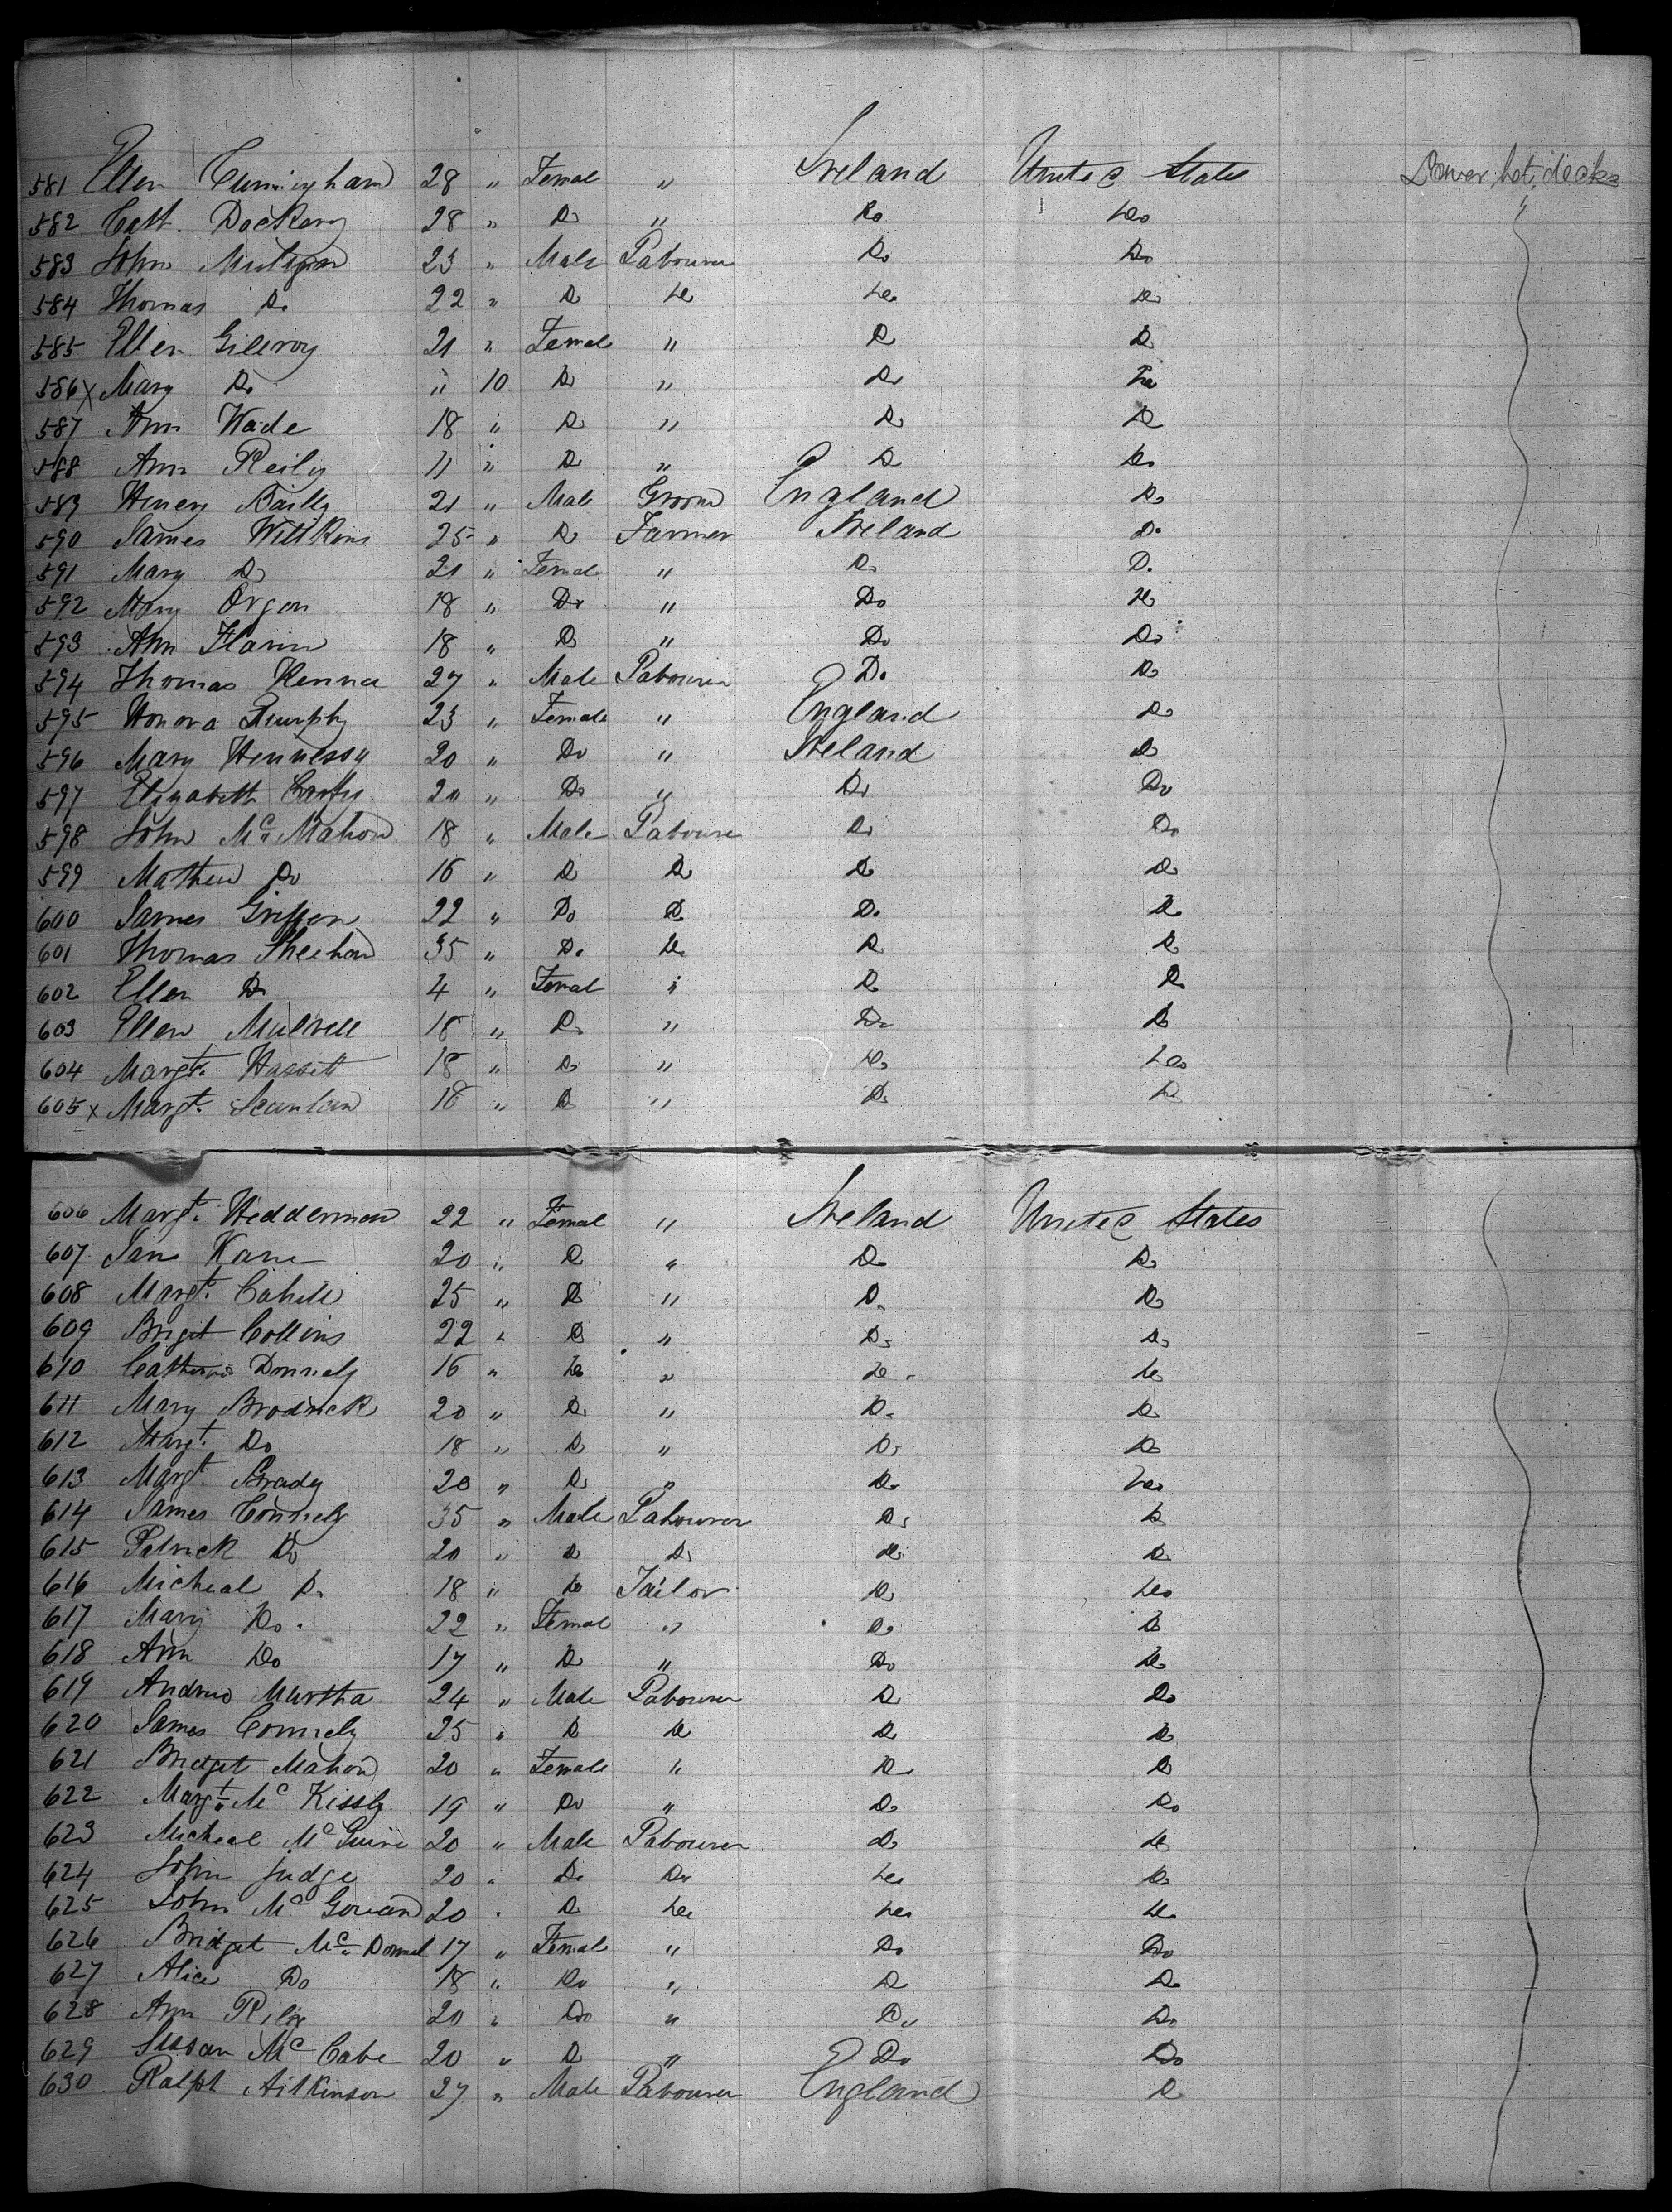 581 Ellen Cunningham 28 " Female " Ireland United States Lower bet. decks
582 Cath. Dockery 28 " Do " Do Do "
583 John Mulligan 23 " Male Labourer Do Do
584 Thomas Do 22 " Do Do Do Do
585 Ellen Gillroy 21 " Female " Do Do
586 x Mary Do " 10 Do " Do Do
587 Ann Wade 18 " Do " Do Do
588 Ann Reily 11 " Do " Do Do
589 Henery Bailly 21 " Male Groom England Do
590 James Willkins 25 " Do Farmer Ireland Do
591 Mary Do 21 " Female " Do Do
592 Mary Organ 18 " Do " Do Do
593 Ann 18 " Do " Do Do
594 Thomas Kenna 27 " Male Labourer Do Do
595 Honora Murphy 23 " Female " England Do
596 Mary Hennessy 20 " Do " Ireland Do
597 Elizabeth 20 " Do " Do Do
598 John Mc Mahon 18 " Male Labourer Do Do
599 Mathew Do 16 " Do Do Do Do
600 James Griffen 22 " Do Do Do Do
601 Thomas Sheehan 35 " Do Do Do Do
602 Ellen Do 4 " Female " Do Do
603 Ellen 18 " Do " Do Do
604 Margt. Hassett 18 " Do " Do Do
605 x Margt. Scanlan 18 " Do " Do Do
606 Margt. Hedderman 22 " Female " Ireland United States
607 Jane Kane 20 " Do " Do Do
608 Margt. Cahill 25 " Do " Do Do
609 Brigit Collins 22 " Do " Do Do
610 Catherine Donnely 16 " Do " Do Do
611 Mary Brodrick 20 " Do " Do Do
612 Margt. Do 18 " Do " Do Do
613 Margt. Grady 20 " Do " Do Do
614 James Connely 35 " Male Labourer Do Do
615 Patrick Do 20 " Do Do Do Do
616 Micheal Do 18 " Do Tailor Do Do
617 Mary Do. 22 " Female " Do Do
618 Ann Do 17 " Do " Do Do
619 Andrew Murtha 24 " Male Labourer Do Do
620 James Connely 25 " Do Do Do Do
621 Bridget Mahon 20 " Female " Do Do
622 Margt. Mc Kissly 19 " Do " Do Do
623 Micheal Mc Guire 20 " Male Labourer Do Do
624 John Judge 20 " Do Do Do Do
625 John Mc 20 " Do Do Do Do
626 Bridget Mc Donnel 17 " Female " Do Do
627 Alice Do 18 " Do " Do Do
628 Ann Rily 20 " Do " Do Do
629 Susan Mc Cabe 20 " Do " Do Do
630 Ralph Ailkinson 27 " Male Labourer England Do